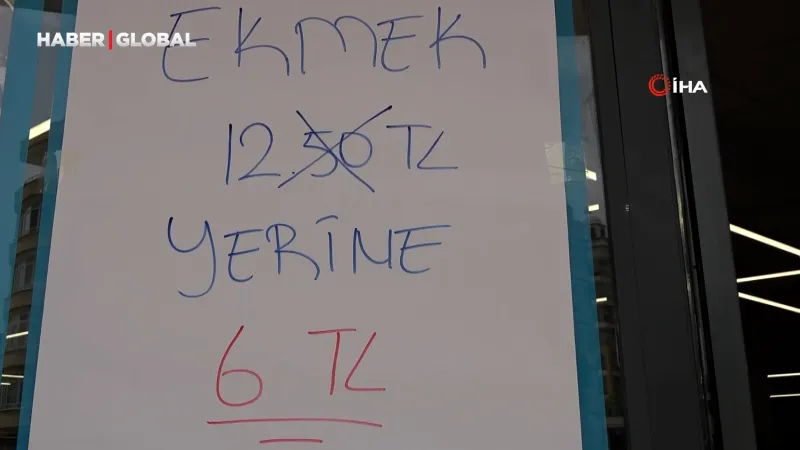 HABER GLOBAL
İHA
EKMEK
12.50 TL
YERİNE
6 TL